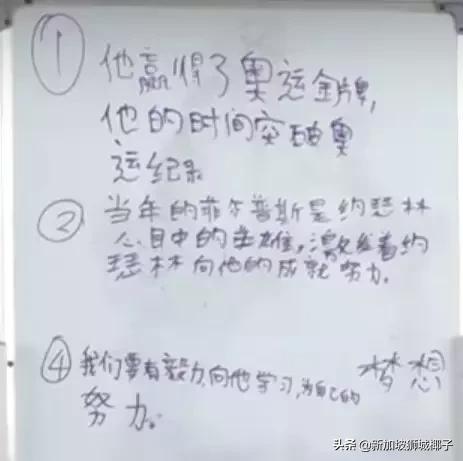 ① 他赢得了奥运金牌,
他的时间突破奥
运纪录
② 当年的菲尔普斯是约瑟林
心目中的英雄,激发着约
瑟林向他的成就努力.
④ 我们要有毅力,向他学习,为自己的 梦想
努力。
头条 @新加坡狮城椰子